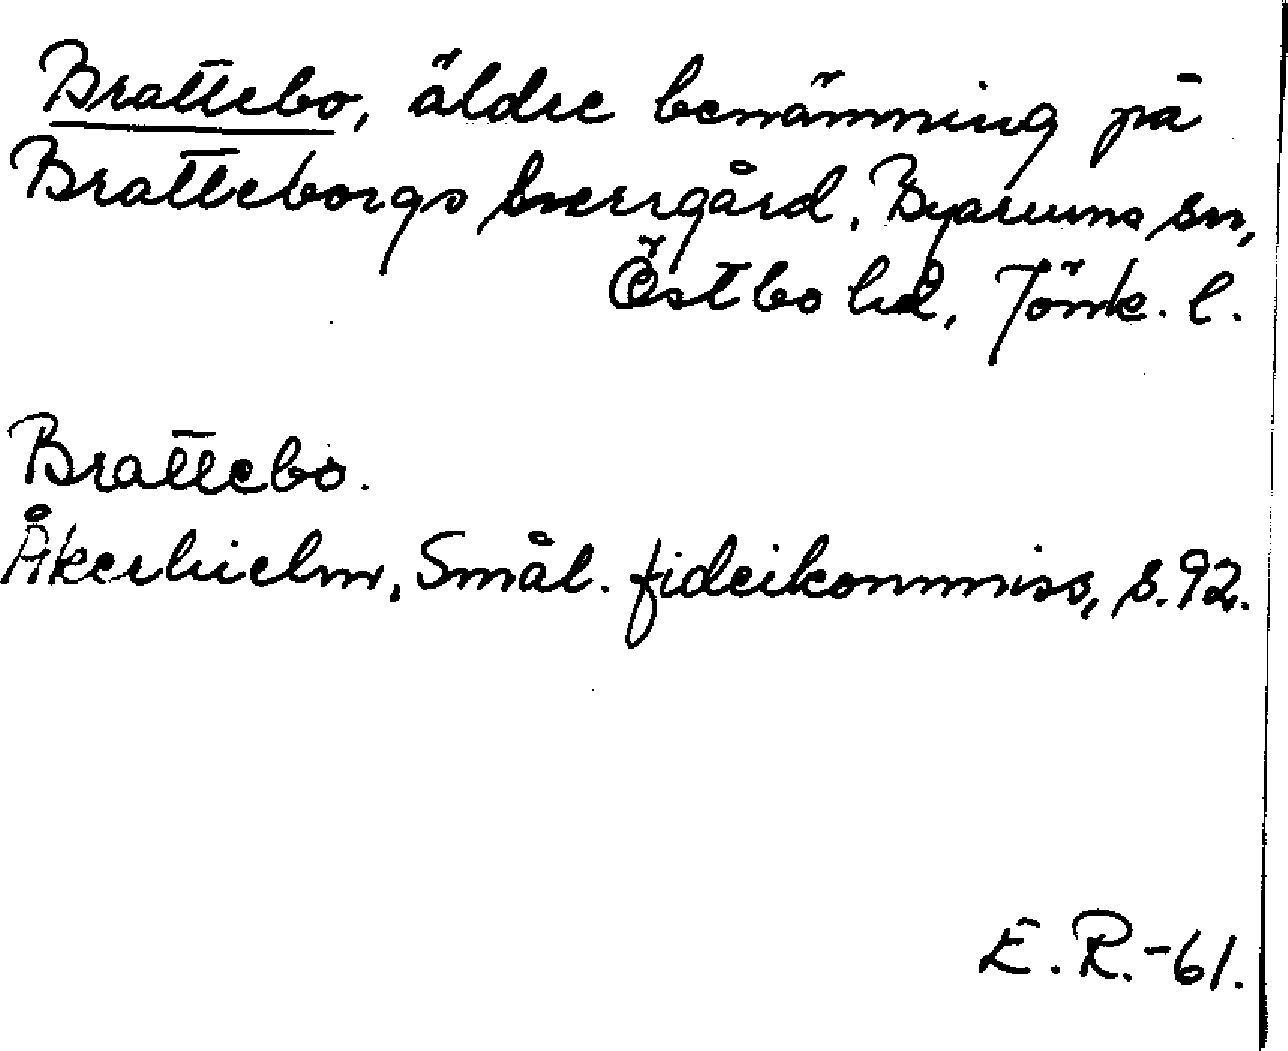 Brattebo, äldre benämning på
Bratteborgs herrgård, Byarums sn,
Östbo hd, Jönk. l.
Brattebo.
Åkerhielm, Smål. fideikommiss, s. 92.
E. R. -61.